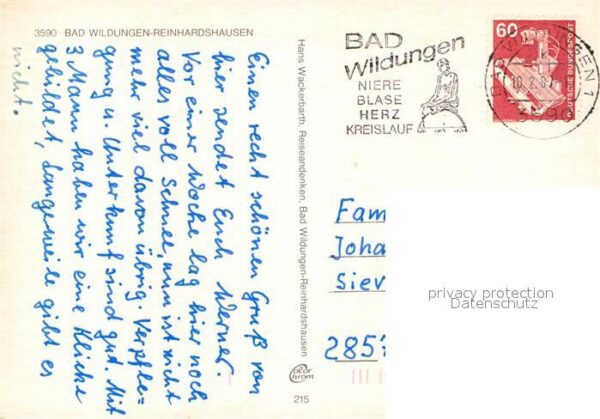 3590 BAD WILDUNGEN-REINHARDSHAUSEN
Einen recht schönen Gruß von
hier sendet Euch Werner.
Vor einer Woche lag hier noch
alles voll Schnee, nun ist nicht
mehr viel davon übrig. Verpfle=
gung u. Unterkunft sind gut. Mit
3 Mann haben wir eine Klicke
gebildet, Langeweile gibt es
nicht.
Hans Wackerbarth, Reiseandenken, Bad Wildungen-Reinhardshausen
color chrom
215
BAD
Wildungen
NIERE
BLASE
HERZ
KREISLAUF
60
DEUTSCHE BUNDESPOST
3590
Fam
Joha
Siev
285
privacy protection
Datenschutz